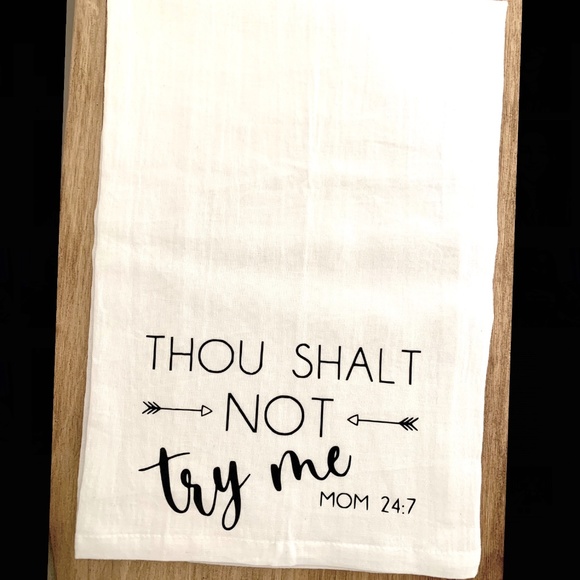 THOU SHALT
NOT
try me
MOM 24:7